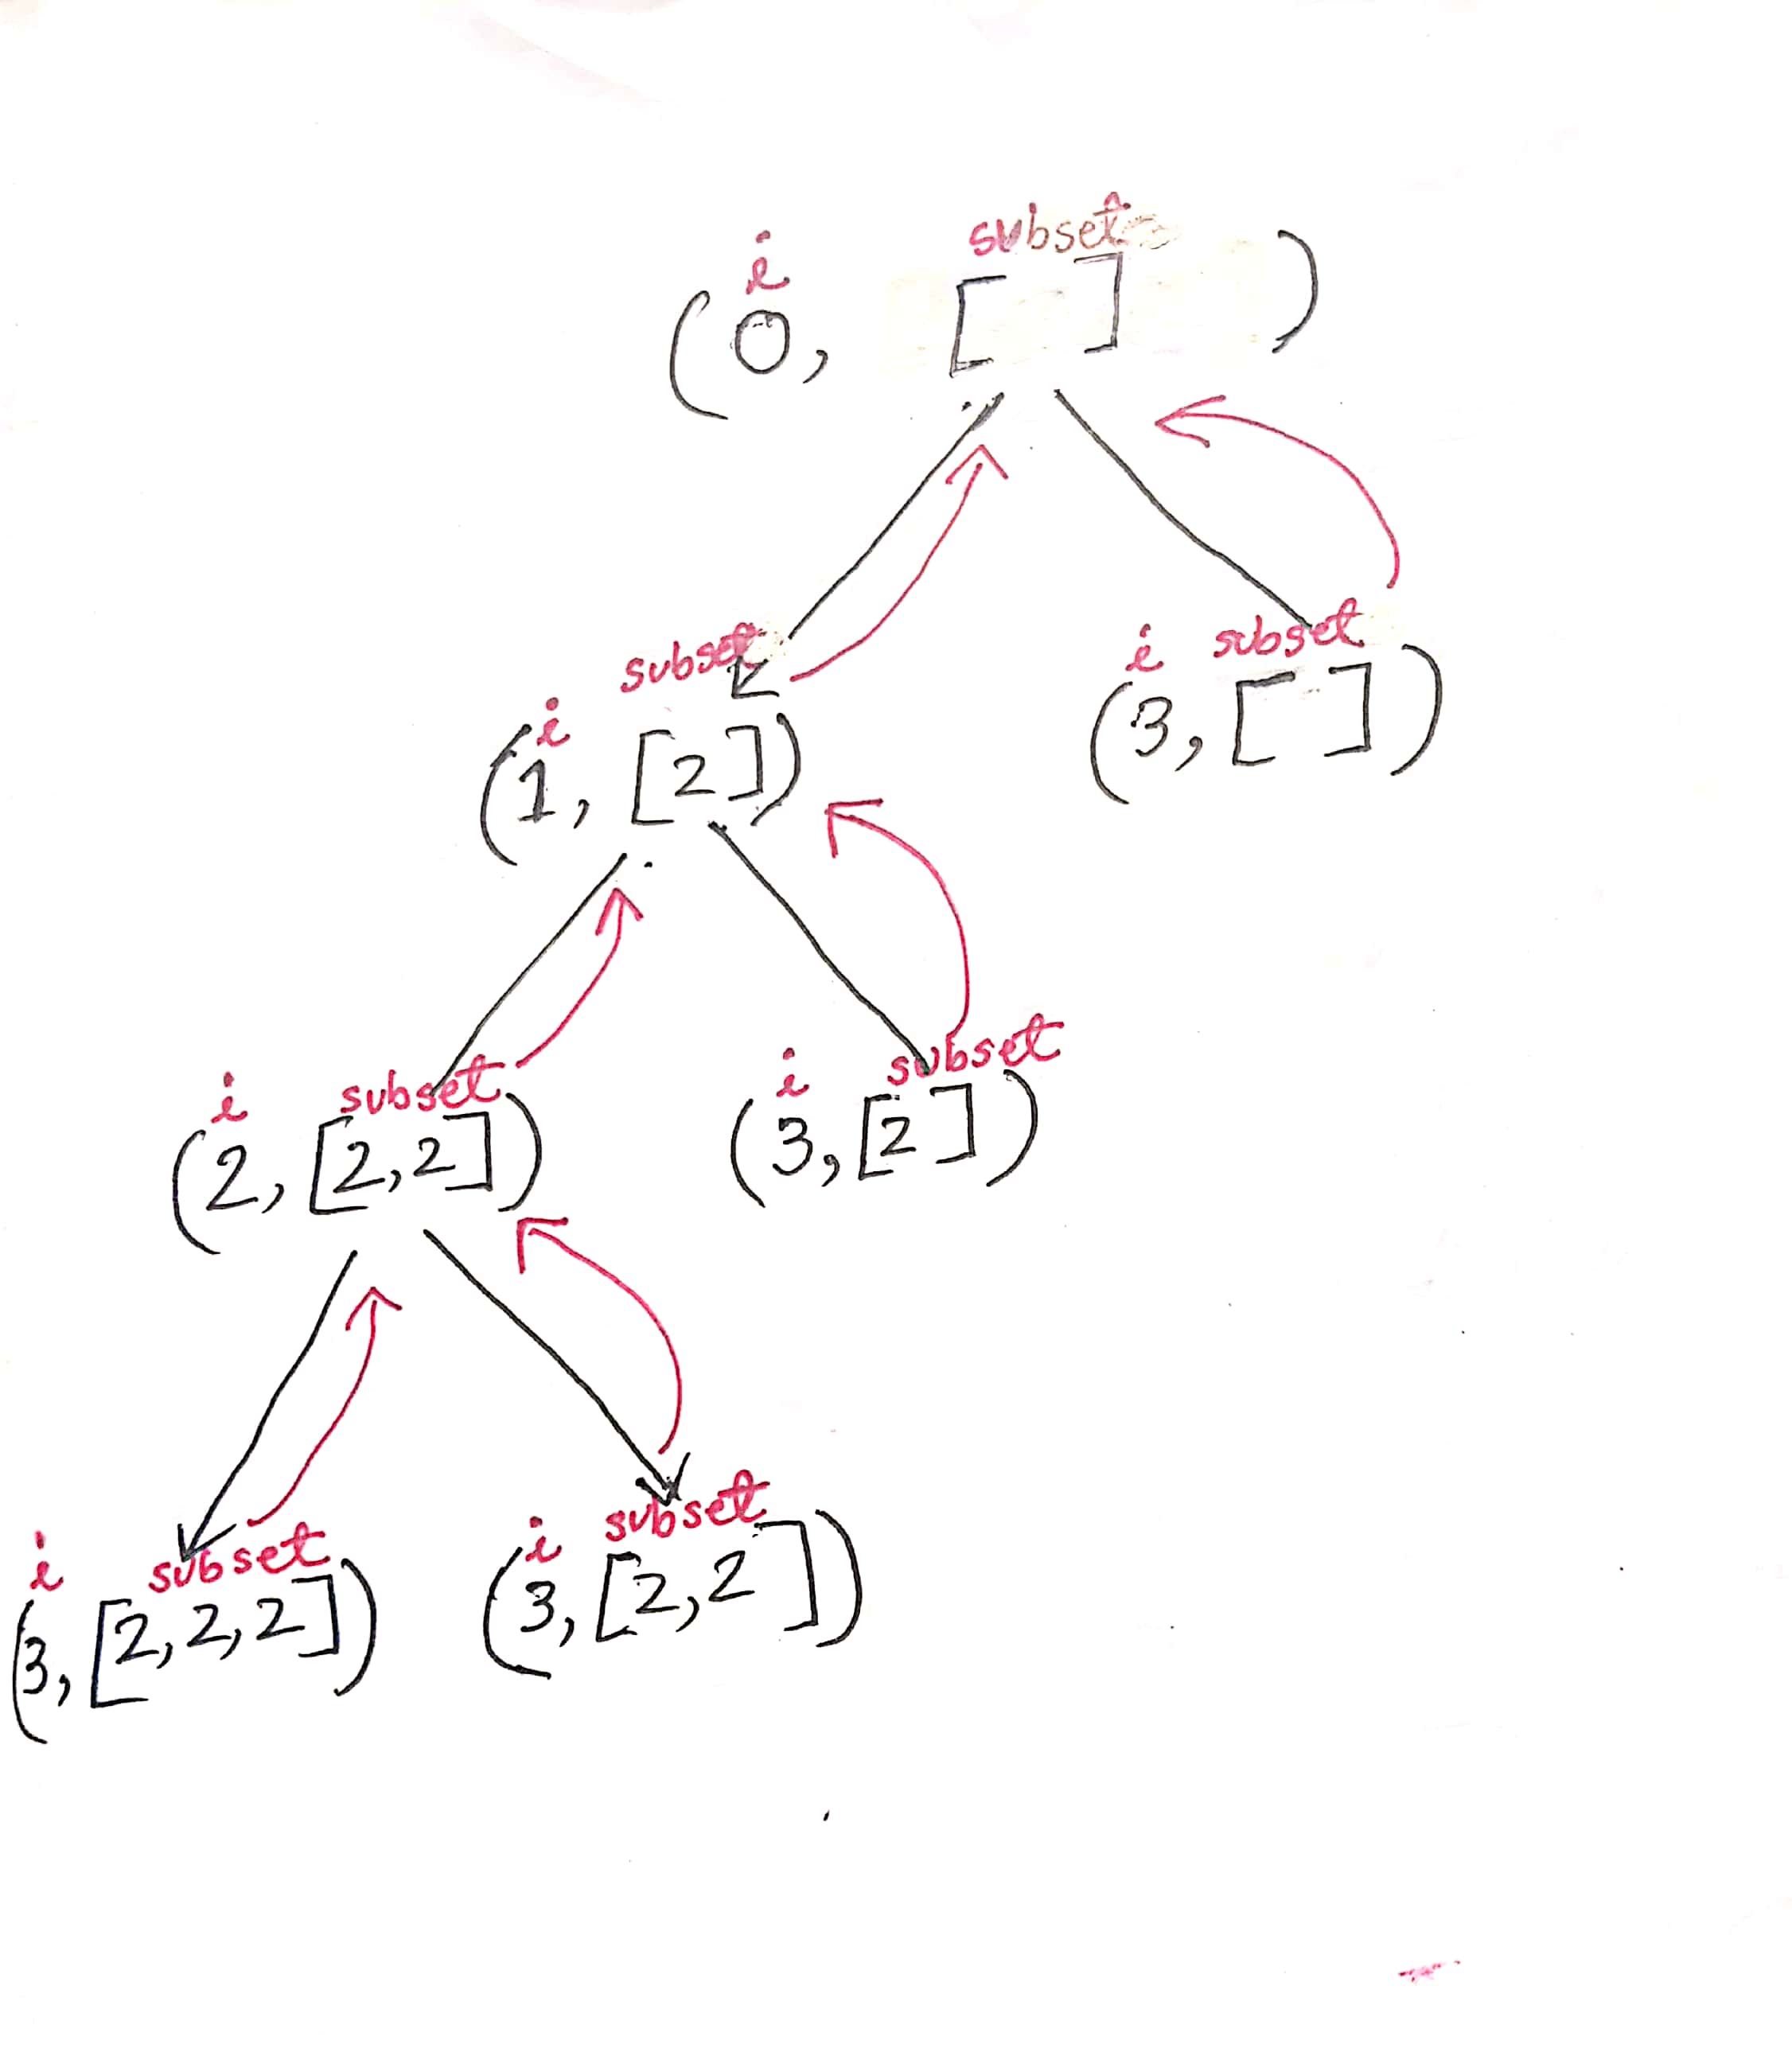 i subset
(0, [ ] )
i subset
(1, [2])
i subset
(3, [ ])
i subset
(2, [2,2])
i subset
(3, [2])
i subset
(3, [2,2,2])
i subset
(3, [2,2])